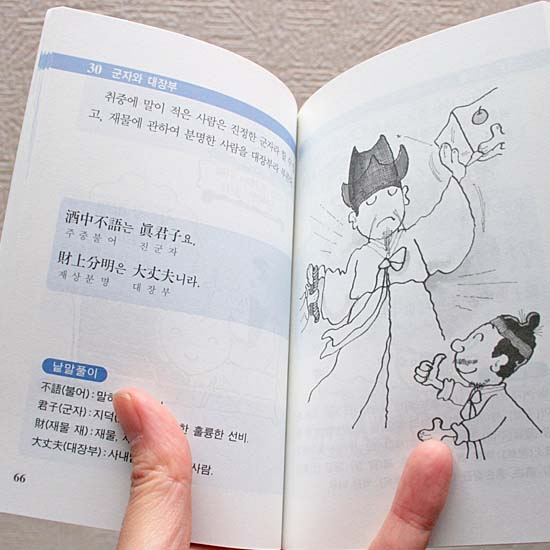 30 군자와 대장부
취중에 말이 적은 사람은 진정한 군자라 할 수
고, 재물에 관하여 분명한 사람을 대장부라
酒中不語는 眞君子요.
주중불어 진군자
財上分明은 大丈夫니라.
재상분명 대장부
낱말풀이
不語(불어) : 말하
君子(군자) : 지덕 한 훌륭한 선비.
財(재물 재) : 재물,
大丈夫(대장부) : 사내 사람.
66